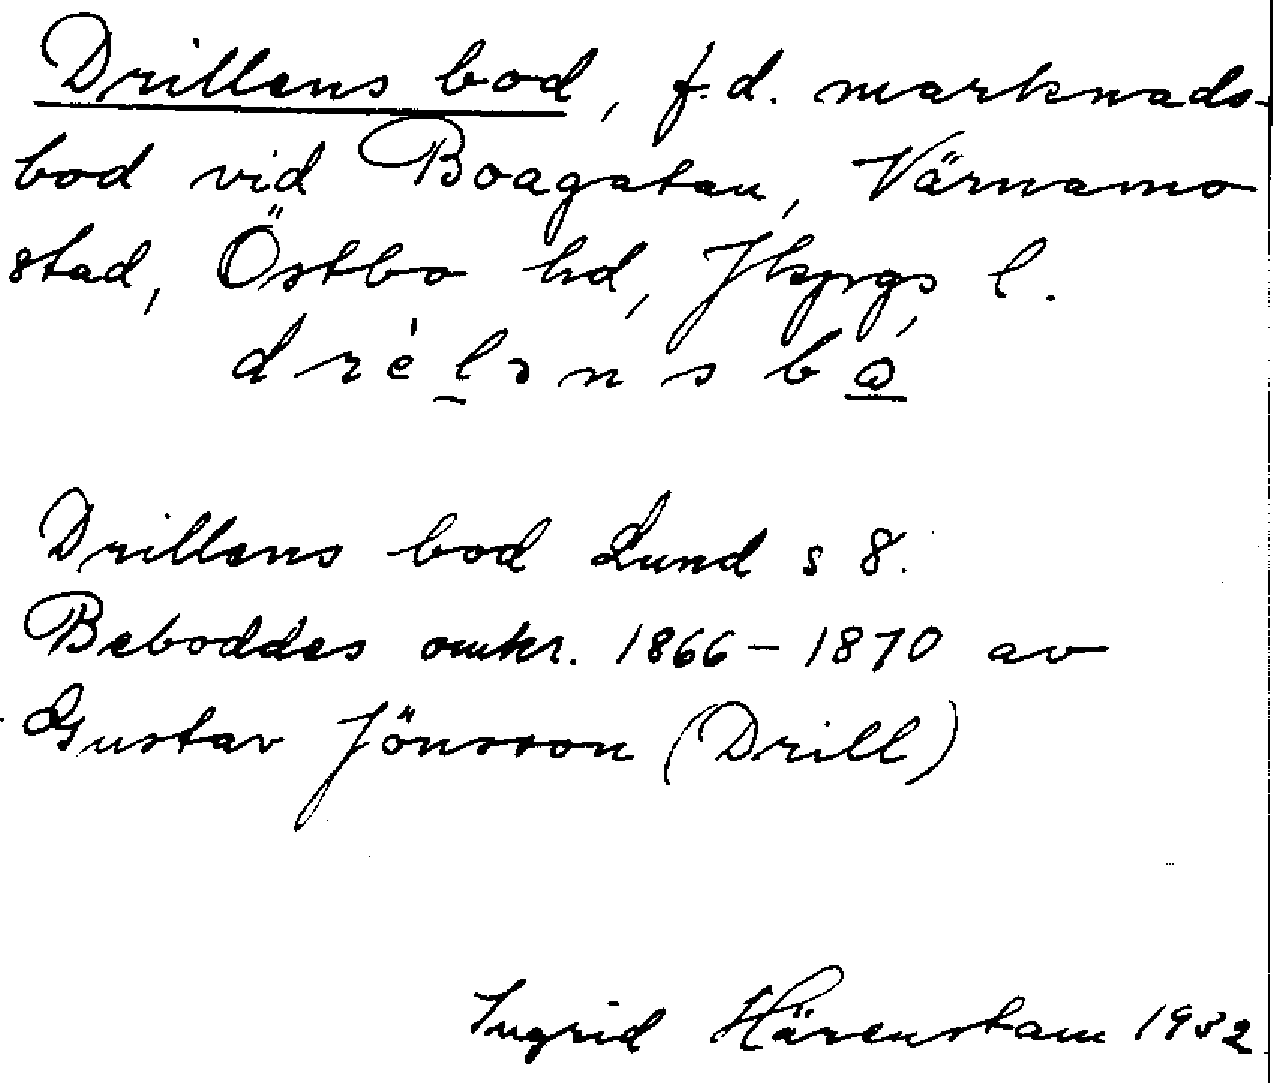 Drillens bod, f.d. marknads-
bod vid Boagatan, Värnamo
stad, Östbo hd, Jkpgs l.
Drillens bod Lund s 8.
Beboddes omkr. 1866–1870 av
Gustav Jönsson (Drill)
Ingrid Härenstam 1932